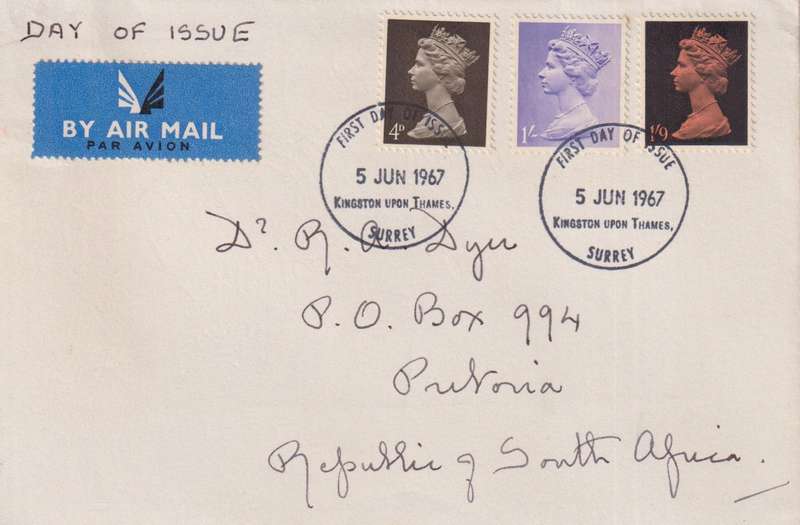 DAY OF ISSUE
BY AIR MAIL
PAR AVION
4D
1/-
1/9
FIRST DAY OF ISSUE
5 JUN 1967
KINGSTON UPON THAMES,
SURREY
FIRST DAY OF ISSUE
5 JUN 1967
KINGSTON UPON THAMES,
SURREY
Dr. R. A. Dyer
P.O. Box 994
Pretoria
Republic of South Africa.